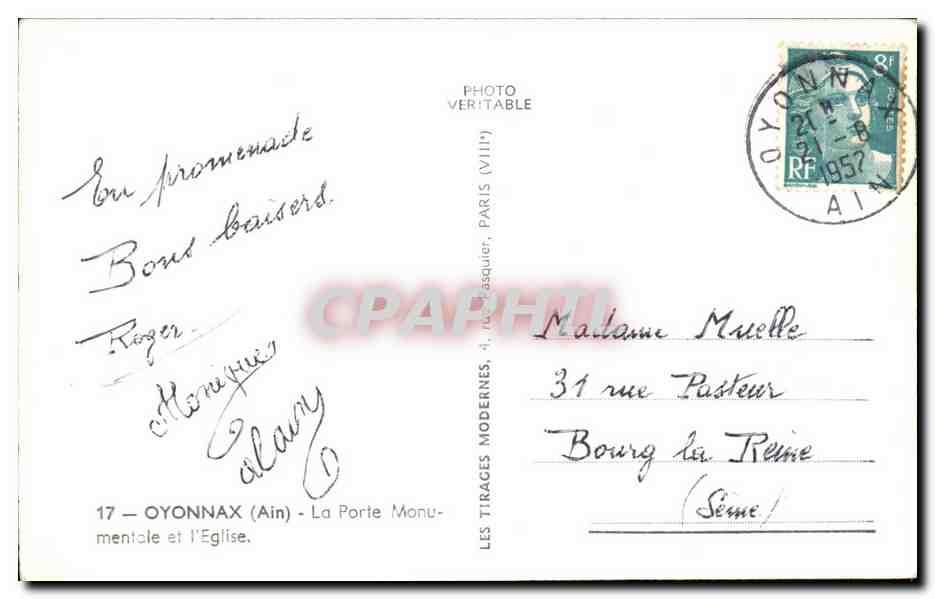 En promenade
Bons baisers.
Roger
Monique
Alain
17 — OYONNAX (Ain) - La Porte Monu-
mentale et l'Eglise.
PHOTO
VERITABLE
LES TIRAGES MODERNES, 4, rue Pasquier, PARIS (VIIIe)
CPAPHIL
8F
POSTES
RF
OYONNAX
21H
21 - 8
1952
AIN
Madame Muelle
31 rue Pasteur
Bourg la Reine
(Seine)